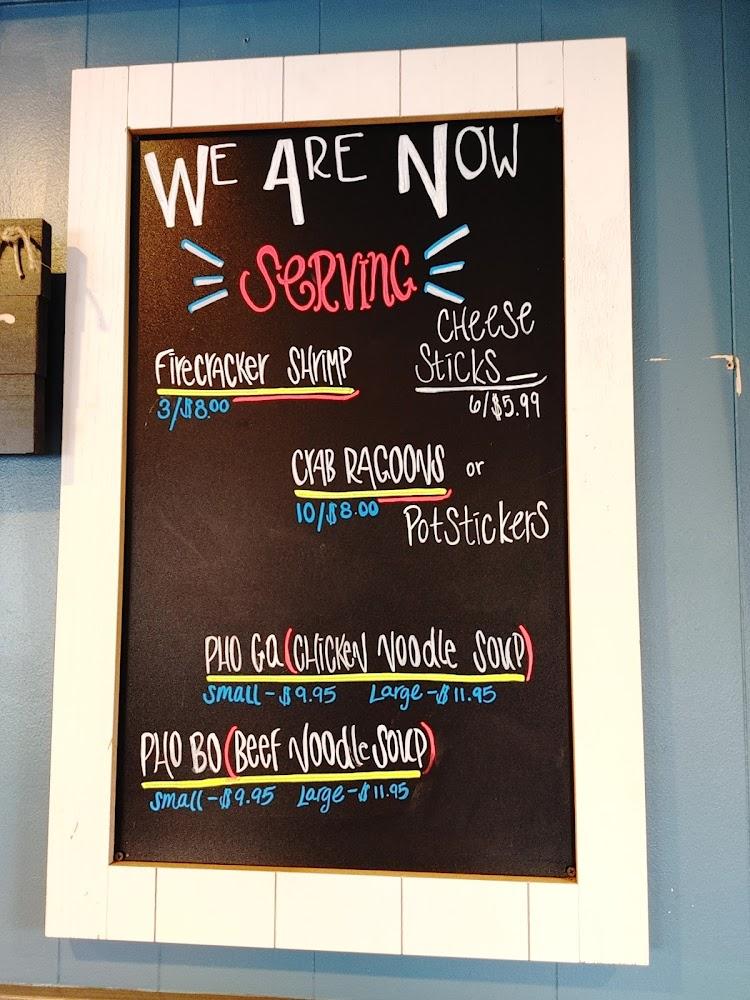 WE ARE NOW
SERVING
CHEESE
FIRECRACKER SHRIMP
STICKS
3/$8.00
6/$5.99
CRAB RAGOONS or
10/$8.00
POTSTICKERS
PHO GA (CHICKEN NOODLE SOUP)
Small - $9.95 Large - $11.95
PHO BO (BEEF NOODLE SOUP)
Small - $9.95 Large - $11.95